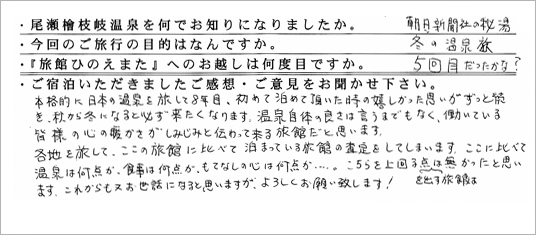 ・尾瀬檜枝岐温泉を何でお知りになりましたか。 朝日新聞社の秘湯
・今回のご旅行の目的はなんですか。 冬の温泉旅
・『旅館ひのえまた』へのお越しは何度目ですか。 5回目だったかな?
・ご宿泊いただきましたご感想・ご意見をお聞かせ下さい。
本格的に日本の温泉を旅して8年目、初めて泊めて頂いた時の嬉しかった思いがずっと続
き、秋から冬になると必ず来たくなります。温泉自体の良さは言うまでもなく、働いている
皆様の心の暖かさがしみじみと伝わって来る旅館だと思います。
各地を旅して、ここの旅館に比べて泊まっている旅館の査定をしてしまいます。ここに比べて
温泉は何点か、食事は何点か、もてなしの心は何点か…。こちらを上回る点は無かったと思い
ます。これからも又お世話になると思いますが、よろしくお願い致します! を出す旅館は